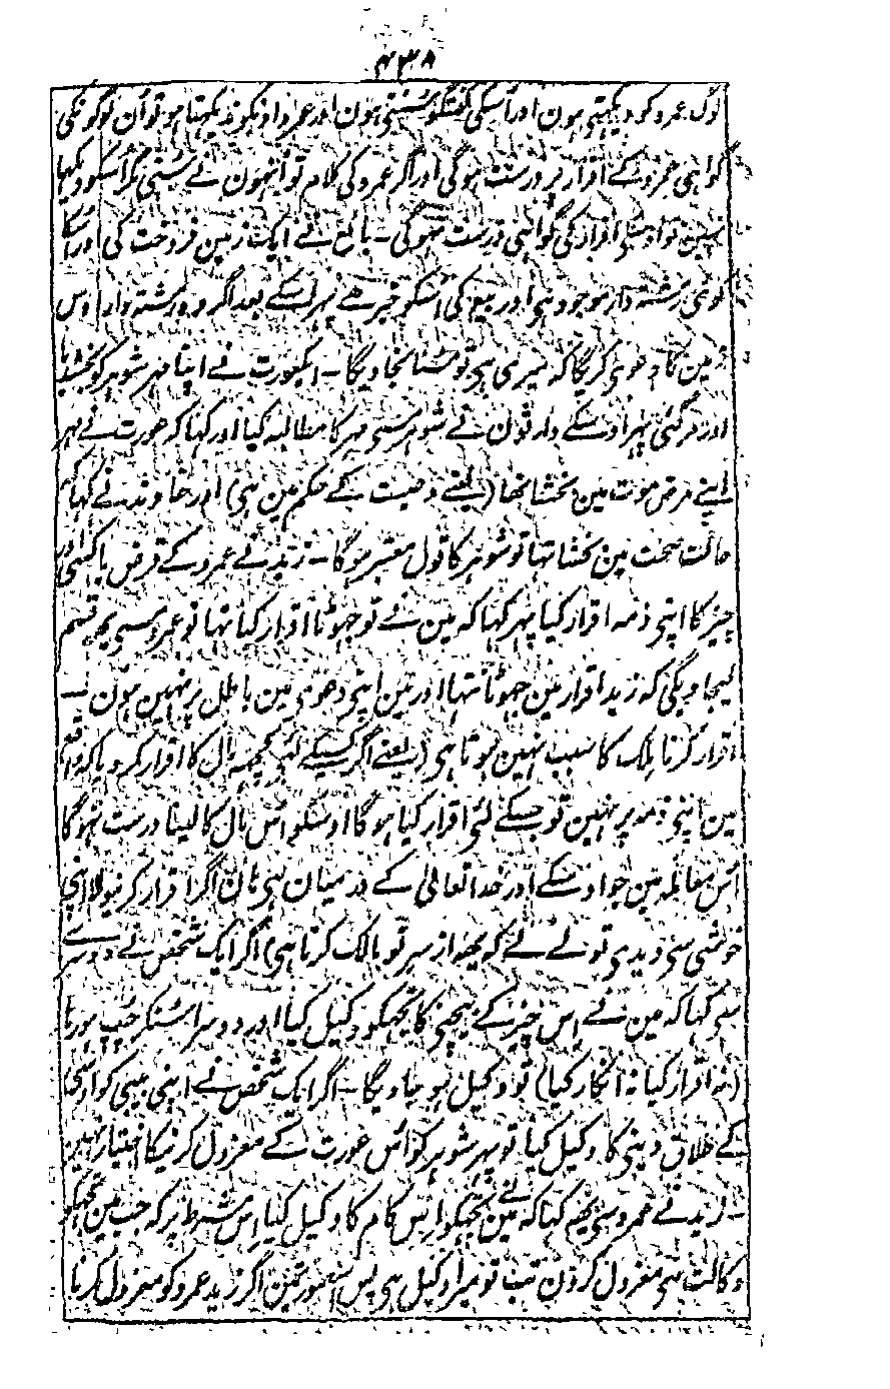 ۴۳۸
لوگ عمرو کو دیکہتی ہون اور اُسکی گفتگو سُنتی ہون اور عمرو اونکو ندیکہتا ہو تو اُن لوگونکی
گواہی عمرو کے اقرار پر درست ہوگی اور اگر عمرو کی کلام تو اُنہون نے سُنی مگر اُسکو دیکہا
نہین تو اوسکی اقرار کی گواہی درست نہوگی ۔ بائع نے ایک زمین فروخت کی اور اُسکا
کوئی رشتہ دار موجود ہی اور بیع کی اُسکو خبر ہے پہر اسکے بعد اگر وہ رشتہ دار اوس
زمین کا دعوی کریگا کہ میری ہی تو سُنا نجاویگا ۔ ایکعورت نے اپنا مہر شوہر کو بخشدیا
اور مرگئی پہر اوسکے وارثون نے شوہر سی مہر کا مطالبہ کیا اور کہا کہ عورت نے مہر
اپنے مرض موت مین بخشا تہا (یعنے وصیت کے حکم مین ہی) اور خاوند نے کہا کہ
حالت صحت مین بخشا تہا تو شوہر کا قول معتبر ہوگا ۔ زید نے عمرو کے قرض یا کسی اور
چیز کا اپنی ذمہ اقرار کیا پہر کہا کہ مین نے تو جہوٹا اقرار کیا تہا تو عمرو سی یہہ قسم
لیجاویگی کہ زید اقرار مین جہوٹا نتہا اور مین اپنی دعوی مین باطل پر نہین ہون ۔
اقرار کرنا ملک کا سبب نہین ہوتا ہی (یعنے اگر کسیکے لئے کچہہ مال کا اقرار کر دیا کہ واقع
مین اپنی ذمہ پر نہین تو جسکے لئی اقرار کیا ہوگا اوسکو اس مال کا لینا درست نہوگا
اُس معاملہ مین جو اوسکے اور خدا تعالیٰ کے درمیان ہی ہان اگر اقرار کرنیولا اپنی
خوشی سی دیدی تو لے لے گویا یہہ از سر نو مالک کرنا ہی) اگر ایک شخص نے دوسرے
سی کہا کہ مین نے اس چیز کے بیچنی کا تجہکو وکیل کیا اور دوسرا سُنکر چپ ہو رہا
(نہ اقرار کیا نہ انکار کیا) تو وکیل ہو جاویگا ۔ اگر ایک شخص نے اپنی بیبی کو اوسی
کے طلاق دینی کا وکیل کیا تو پہر شوہر کو اُس عورت کے معزول کرنیکا اختیار نہین
۔ زید نے عمرو سی یہہ کہا کہ مین نے تجہکو اس کام کا وکیل کیا اس شرط پر کہ جب مین تجہکو
وکالت سی معزول کرون تب تو میرا وکیل ہی پس اس صورتمین اگر زید عمرو کو معزول کرنا